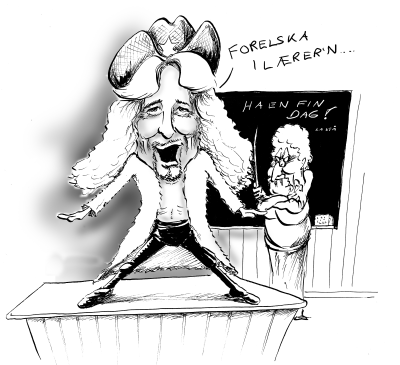 FORELSKA
I LÆRER'N...
HA EN FIN
DAG!